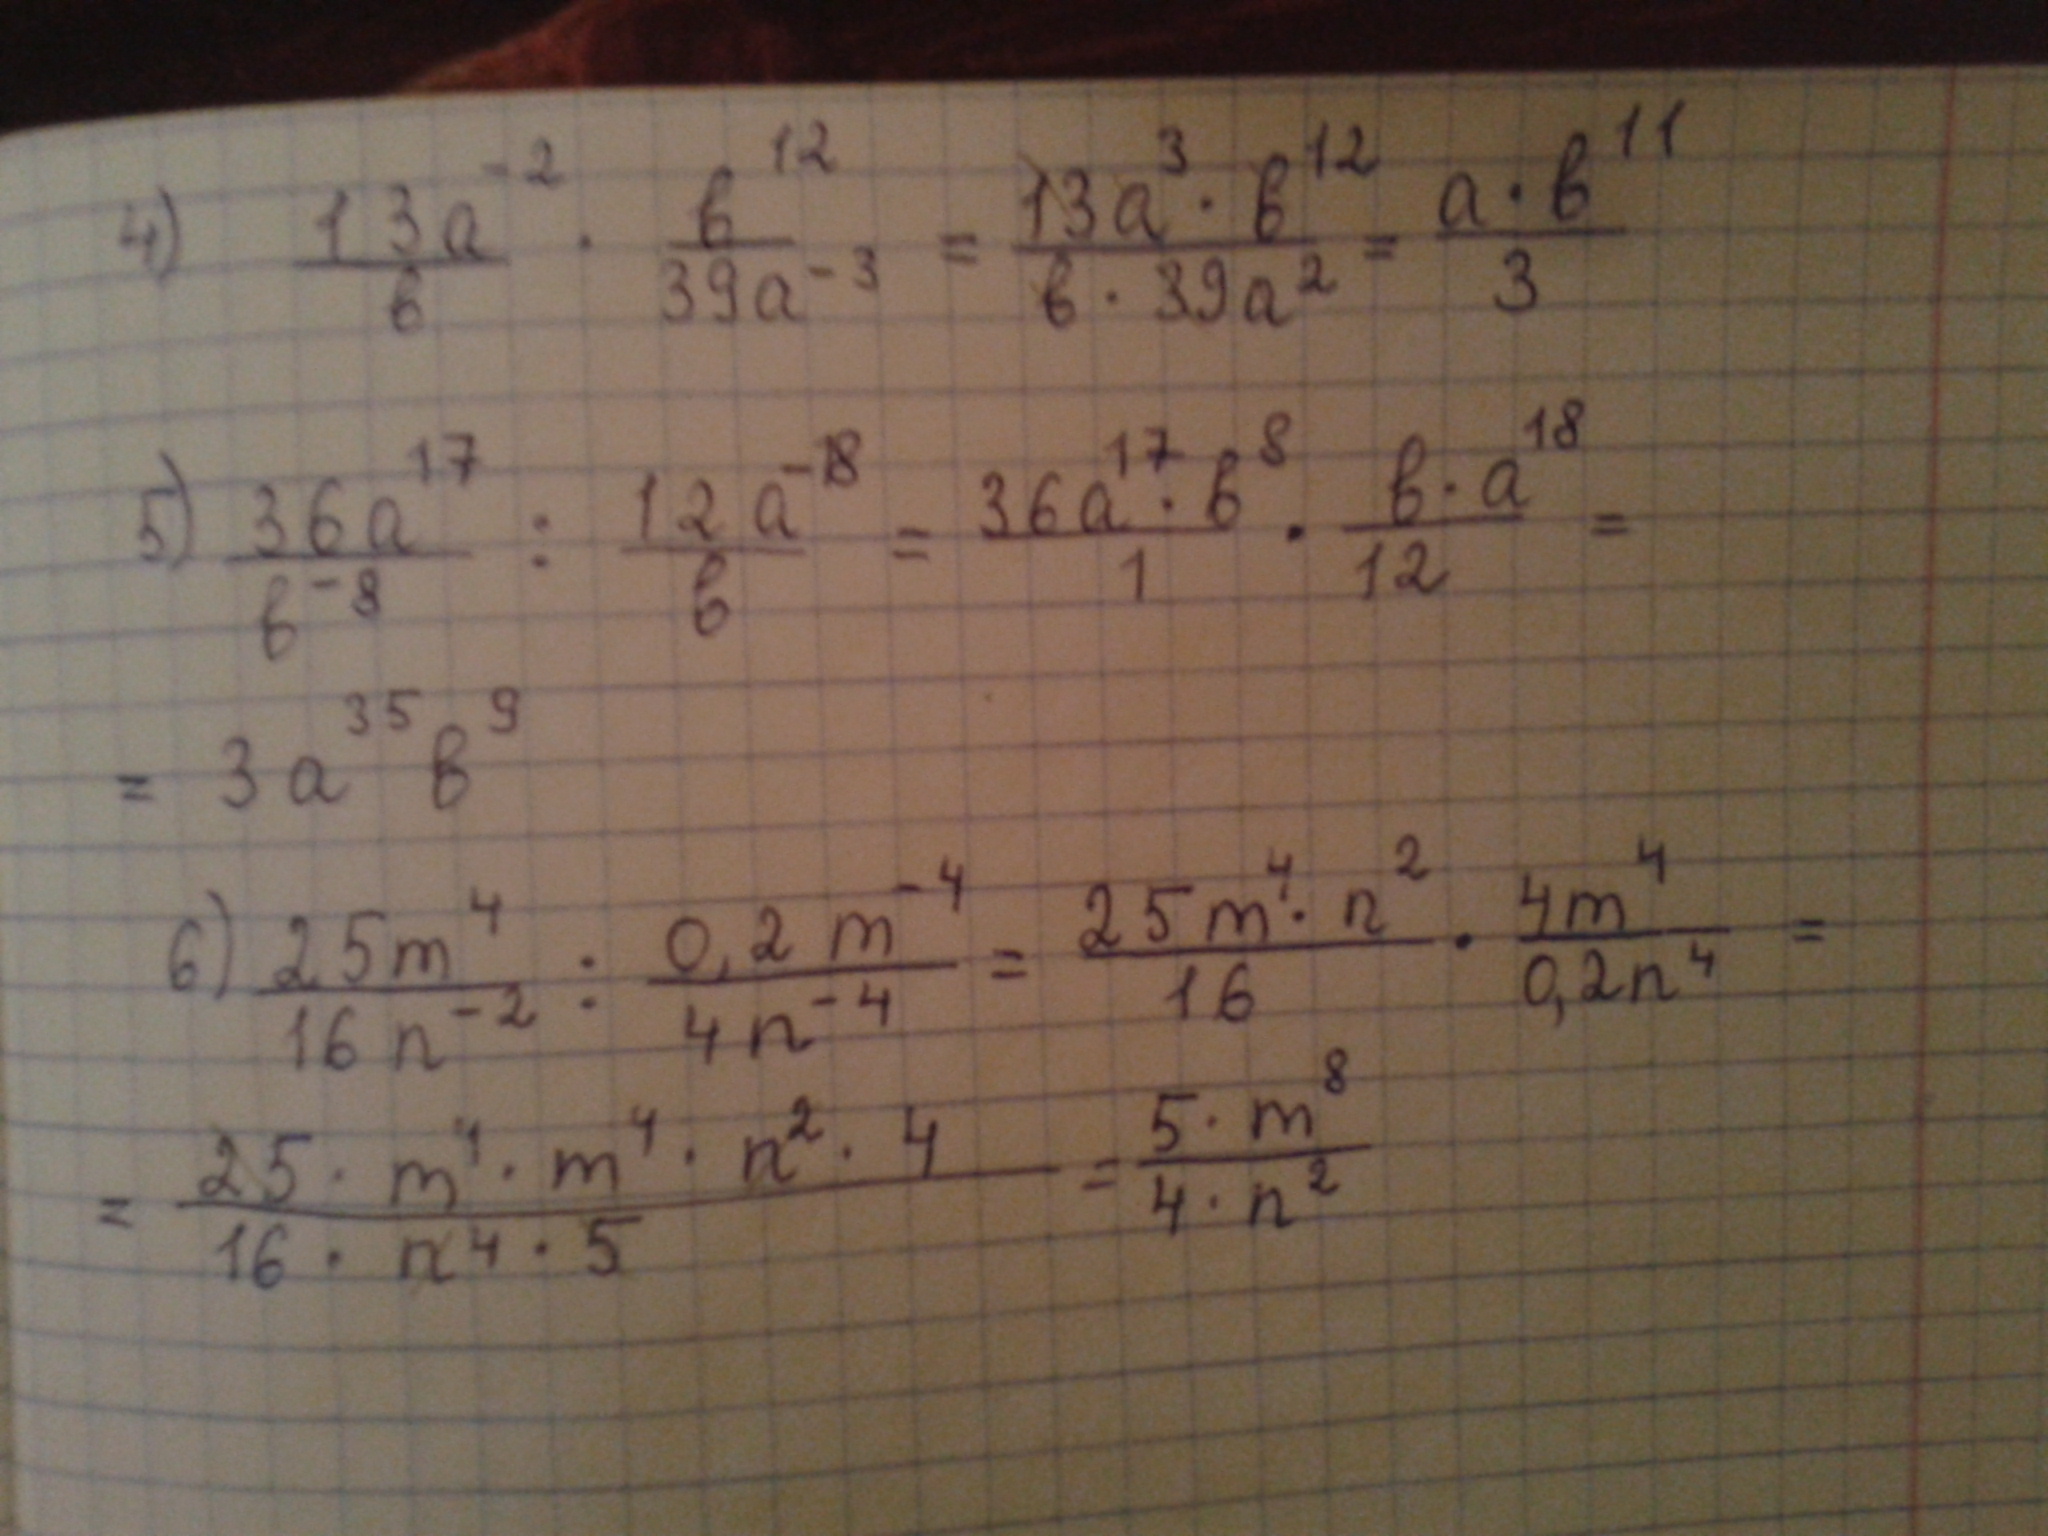 4) 13a⁻²/в · в¹²/39a⁻³ = 13a³·в¹²/в·39a² = a·в¹¹/3
5) 36a¹⁷/в⁻⁸ : 12a⁻¹⁸/в = 36a¹⁷·в⁸/1 · в·a¹⁸/12 =
= 3a³⁵в⁹
6) 25m⁴/16n⁻² : 0,2m⁻⁴/4n⁻⁴ = 25m⁴·n²/16 · 4m⁴/0,2n⁴ =
= 25·m⁴·m⁴·n²·4/16·n⁴·5 = 5·m⁸/4·n²